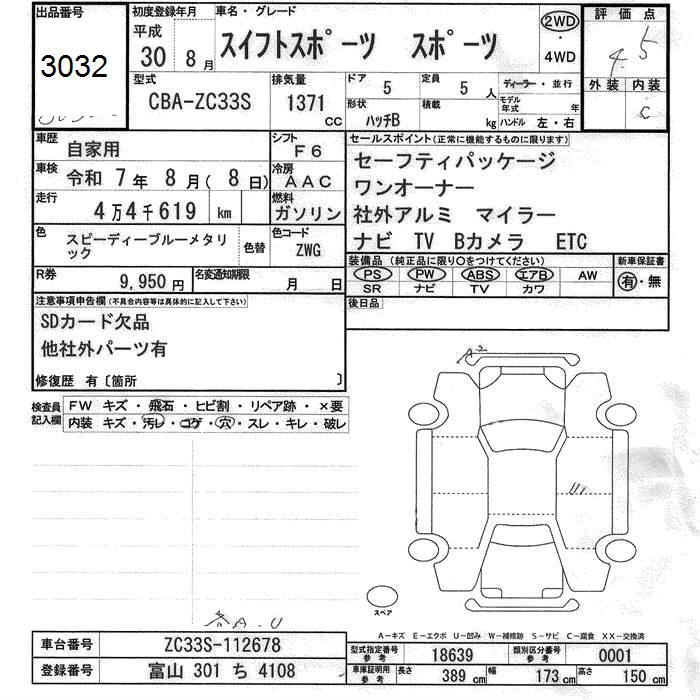 出品番号
3032
初度登録年月
平成
30 8月
車名・グレード
スイフトスポーツ スポーツ
2WD
4WD
評価点
4.5
外装 内装
C
型式
CBA-ZC33S
排気量
1371 cc
ドア 5
定員 5人
形状 ハッチB
積載 kg
ディーラー・並行
モデル年式 年
ハンドル 左・右
車歴 自家用
シフト F6
車検 令和 7年 8月( 8日)
冷房 AAC
走行 4万4千619 km
燃料 ガソリン
色 スピーディーブルーメタリック
色替
色コード ZWG
R券 9,950円
名変通知期限 月 日
セールスポイント(正常に機能するものに限ります)
セーフティパッケージ
ワンオーナー
社外アルミ マイラー
ナビ TV Bカメラ ETC
装備品 (純正品に限り〇をつけてください)
PS PW ABS エアB AW
SR ナビ TV カワ
新車保証書
有・無
後日品
注意事項申告欄(不具合内容等は具体的に記入して下さい)
SDカード欠品
他社外パーツ有
修復歴 有〔箇所 〕
検査員記入欄
FW キズ・飛石・ヒビ割・リペア跡・×要
内装 キズ・汚レ・コゲ・穴・スレ・キレ・破レ
A2
U1
スペア
各A.U
A-キズ E-エクボ U-凹み W-補修跡 S-サビ C-腐食 XX-交換済
車台番号 ZC33S-112678
登録番号 富山 301 ち 4108
型式指定番号 参考 18639
類別区分番号 参考 0001
車庫証明用 参考 長さ 389 cm 幅 173 cm 高さ 150 cm